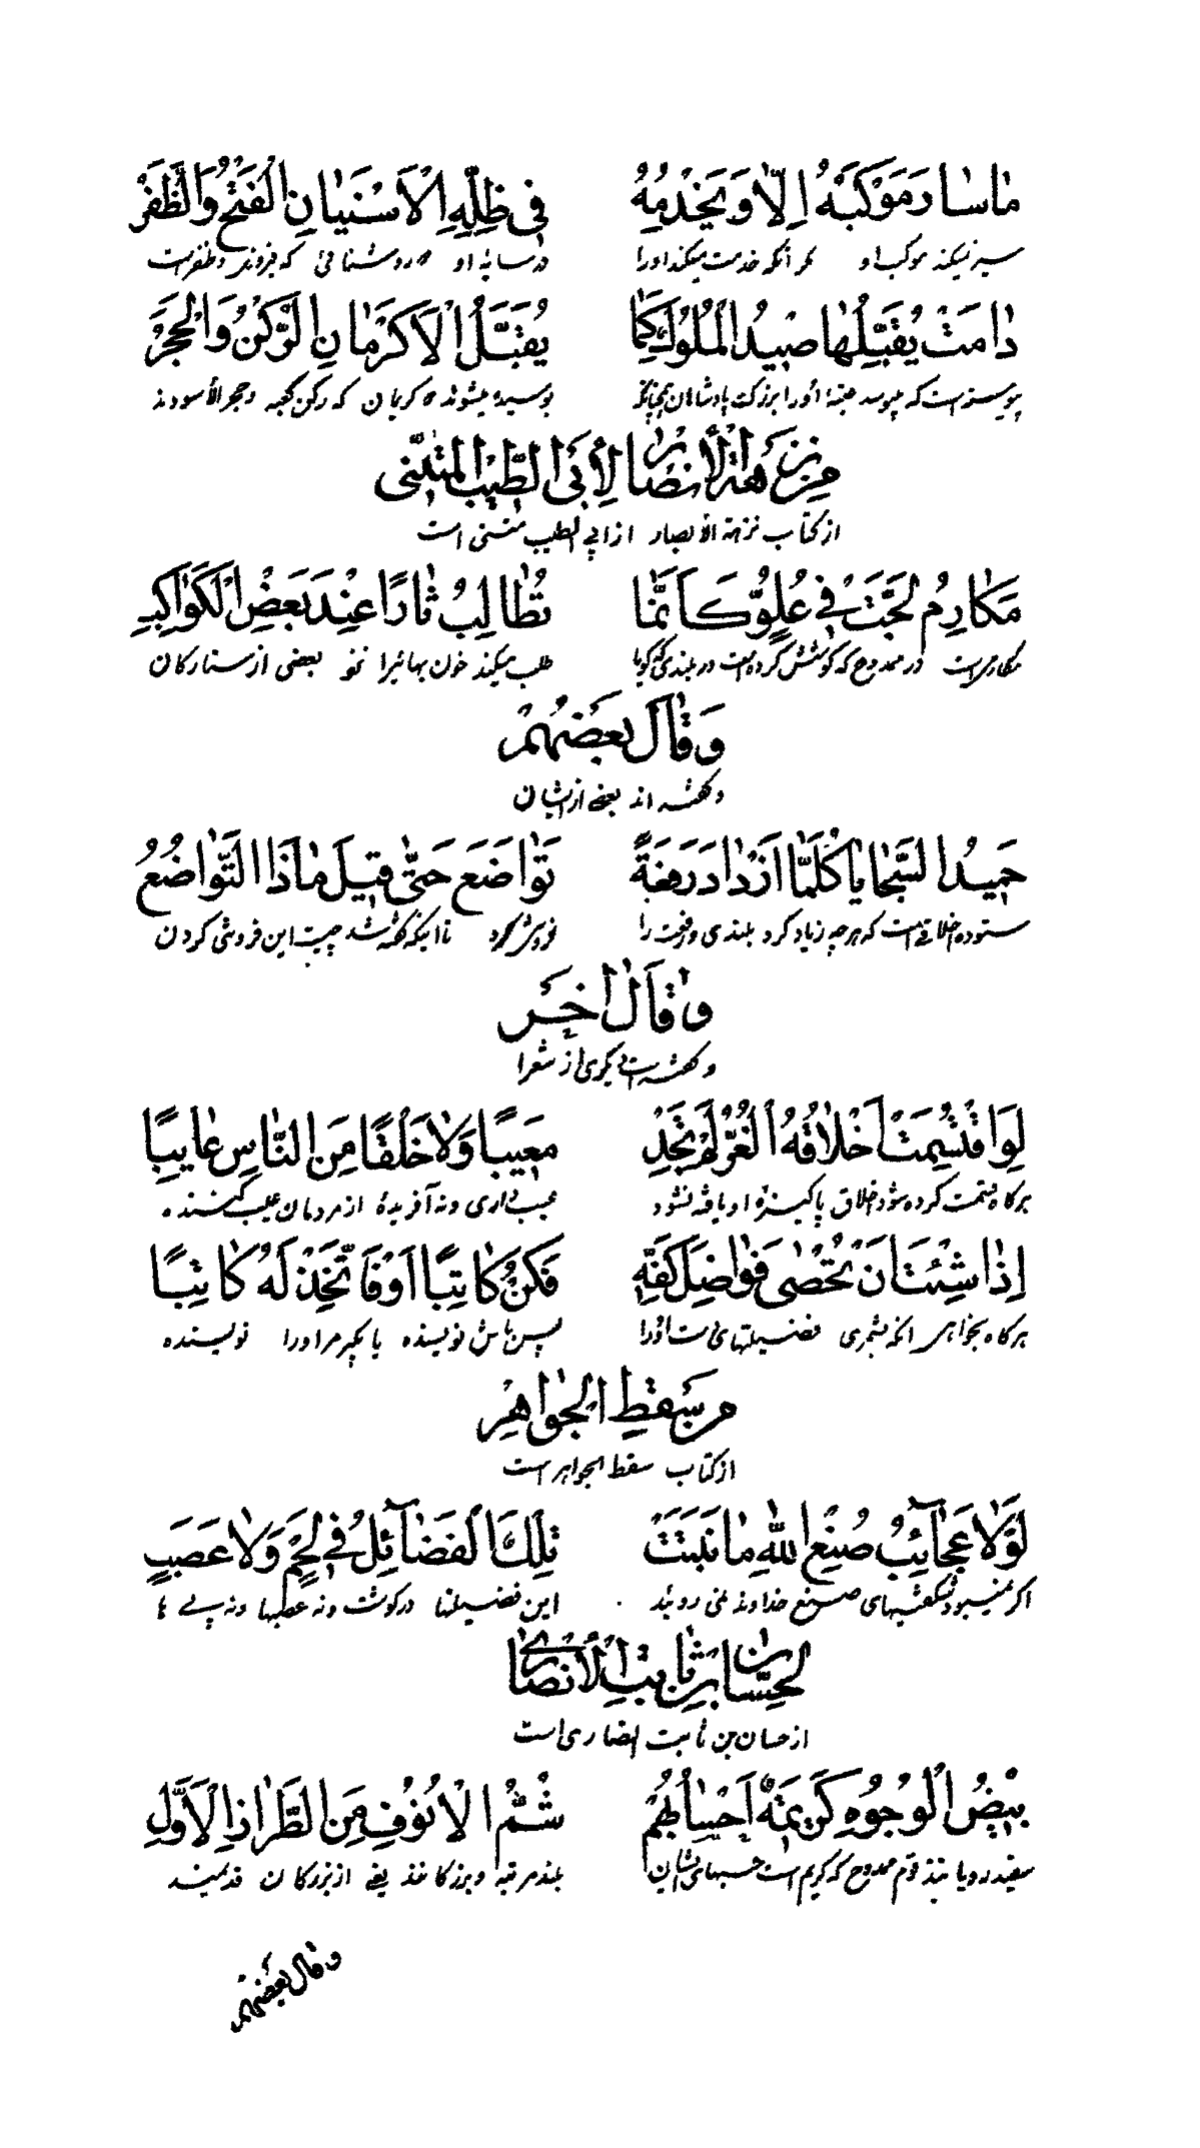 مَا سَارَ مَوْكَبُهُ إِلَّا وَيَخْدُمُهُ فِي ظِلِّهِ الْأَسْنَيَانِ الْفَتْحُ وَالظَّفَرُ
سیر نمیکند موکب او مگر آنکه خدمت میکند او را در سایهٔ او دو روشنائی که فیروزی و ظفر است
دَامَتْ يُقَبِّلُهَا صِيدُ الْمُلُوكِ كَمَا يُقَبَّلُ الْأَكْرَمَانِ الرُّكْنُ وَالْحَجَرُ
پیوسته است که میبوسد عتبهٔ او را بزرگ پادشاهان چنانکه بوسیده میشوند دو کریمان که رکن کعبه و حجر الأسودند
مِنْ نُزْهَةِ الْأَبْصَارِ لِأَبِي الطَّيِّبِ الْمُتَنَبِّي
از کتاب نزهة الابصار از ابی الطیب متنبی است
مَكَارِمُ لَجَّتْ فِي عُلُوٍّ كَأَنَّمَا تُطَالِبُ ثَارًا عِنْدَ بَعْضِ الْكَوَاكِبِ
مکارمی است در ممدوح که کوشش کرده است در بلندی گویا طلب میکند خون بهائیرا نزد بعضی از ستارکان
وَقَالَ بَعْضُهُمْ
و گفته اند بعضی از ایشان
حَمِيدُ السَّجَايَا كُلَّمَا ازْدَادَ رِفْعَةً تَوَاضَعَ حَتَّى قِيلَ مَاذَا التَّوَاضُعُ
ستوده اخلاقی است که هرچه زیاد کرد بلندی و رفعت را فروتنی کرد تا اینکه گفته شد چیست این فروتنی کردن
وَقَالَ آخَرُ
و گفته است دیگری از شعرا
لَوِ اقْتُسِمَتْ أَخْلَاقُهُ الْغُرُّ لَمْ تَجِدْ مَعِيبًا وَلَا خَلْقًا مِنَ النَّاسِ عَايِبًا
هرگاه قسمت کرده شود اخلاق پاکیزهٔ او یافته نشود عیب داری و نه آفریدهٔ از مردمان عیب کننده
إِذَا شِئْتَ أَنْ تُحْصَى فَوَاضِلَ كَفِّهِ فَكُنْ كَاتِبًا أَوْ فَاتَّخِذْ لَهُ كَاتِبًا
هرگاه بخواهی آنکه بشمری فضیلتهای دست او را پس باش نویسنده یا بگیر مر او را نویسنده
مِنْ سَقَطِ الْجَوَاهِرِ
از کتاب سقط الجواهر است
لَوْلَا عَجَائِبُ صُنْعِ اللهِ مَا نَبَتَتْ تِلْكَ الْفَضَائِلُ فِي لَحْمٍ وَلَا عَصَبٍ
اگر نمیبود شگفتیهای صنع خداوند نمی روئید این فضیلتها در گوشت و نه عصبها و نه پی ها
لِحَسَّانَ بْنِ ثَابِتٍ الْأَنْصَارِيِّ
از حسان بن ثابت انصاری است
بِيضُ الْوُجُوهِ كَرِيمَةٌ أَحْسَابُهُمْ شُمُّ الْأُنُوفِ مِنَ الطِّرَازِ الْأَوَّلِ
سفید رویانند قوم ممدوح که کریم است حسبهای ایشان بلند مرتبه و بزرگانند یعنی از بزرکان قدیمند
وقال بعضهم